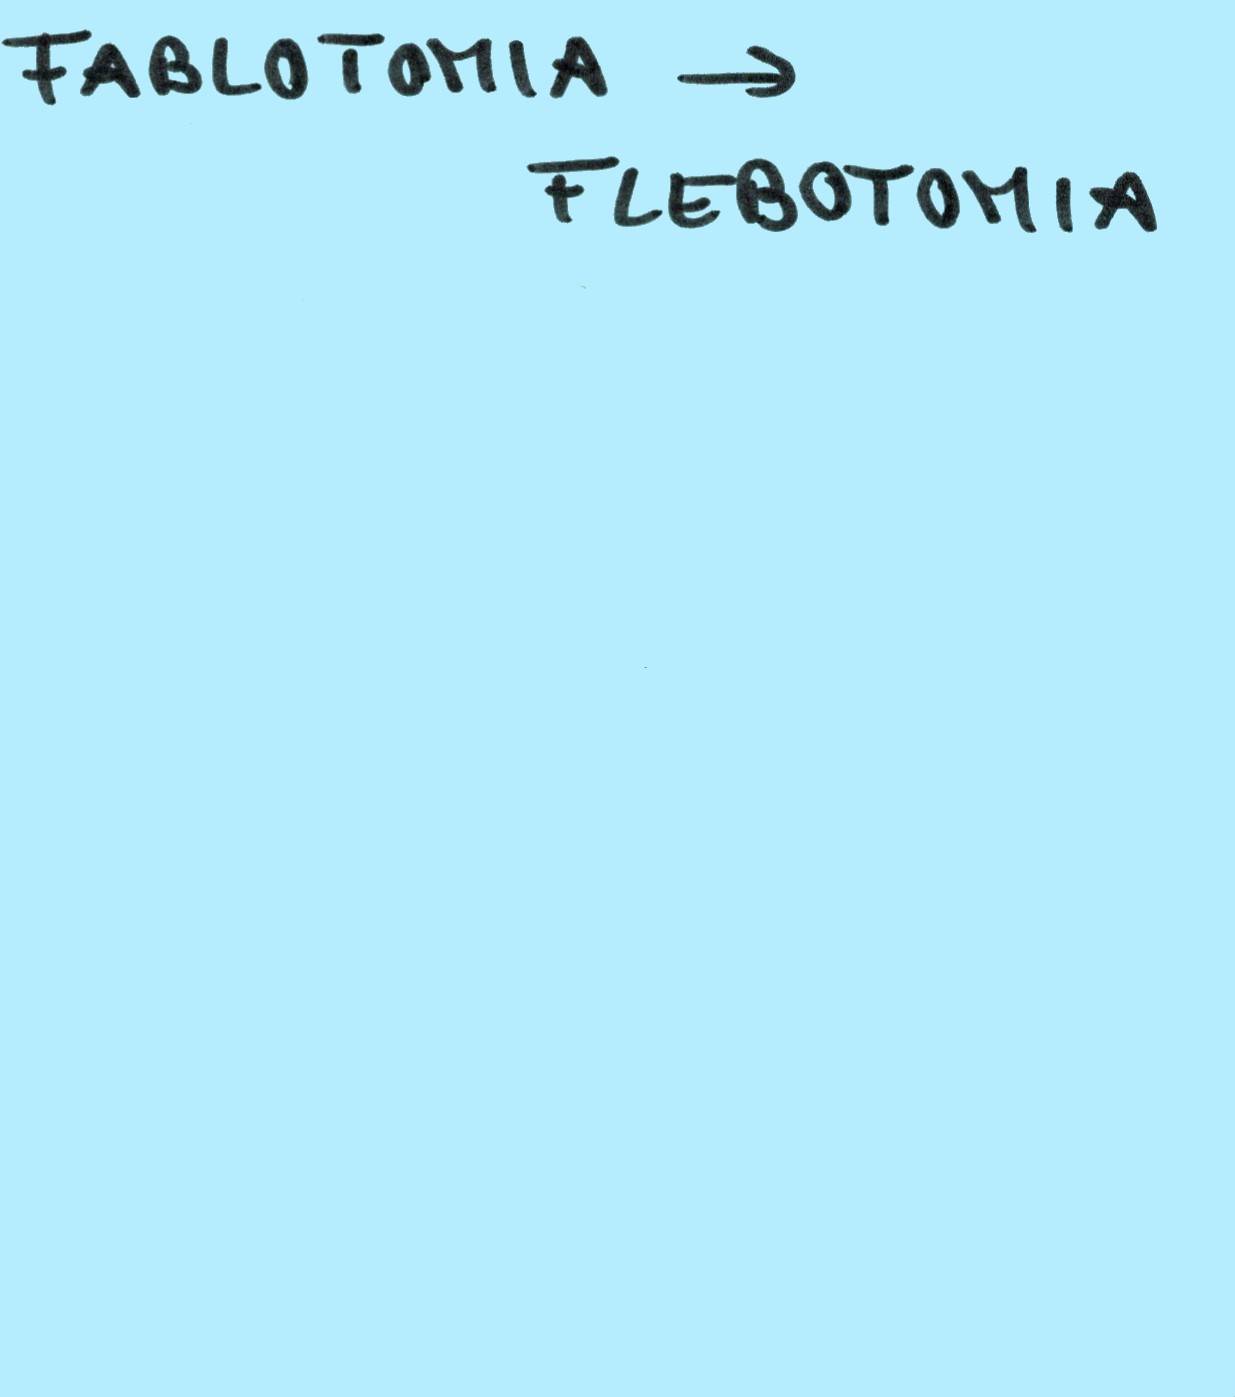 FABLOTOMIA →
FLEBOTOMIA